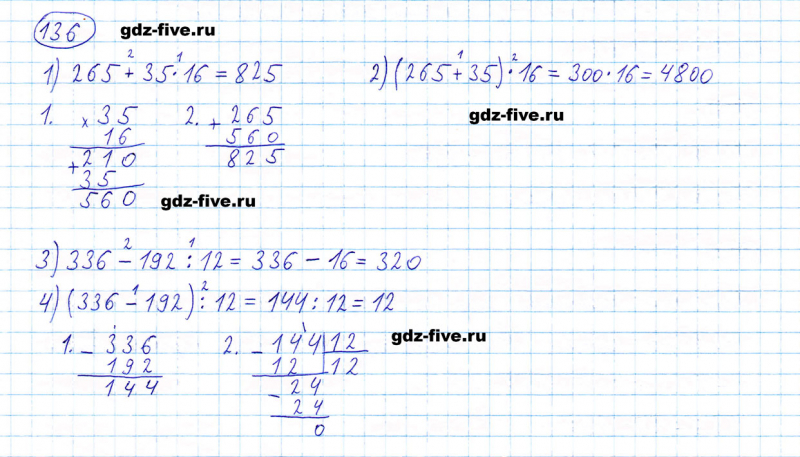 136 gdz-five.ru
1) 265 + 35 · 16 = 825
2) (265 + 35) · 16 = 300 · 16 = 4800
gdz-five.ru
1.
× 35
16
+ 210
35
560
2.
+ 265
560
825
gdz-five.ru
3) 336 − 192 : 12 = 336 − 16 = 320
4) (336 − 192) : 12 = 144 : 12 = 12
1.
− 336
192
144
2.
− 144 | 12
12 12
− 24
24
0
gdz-five.ru